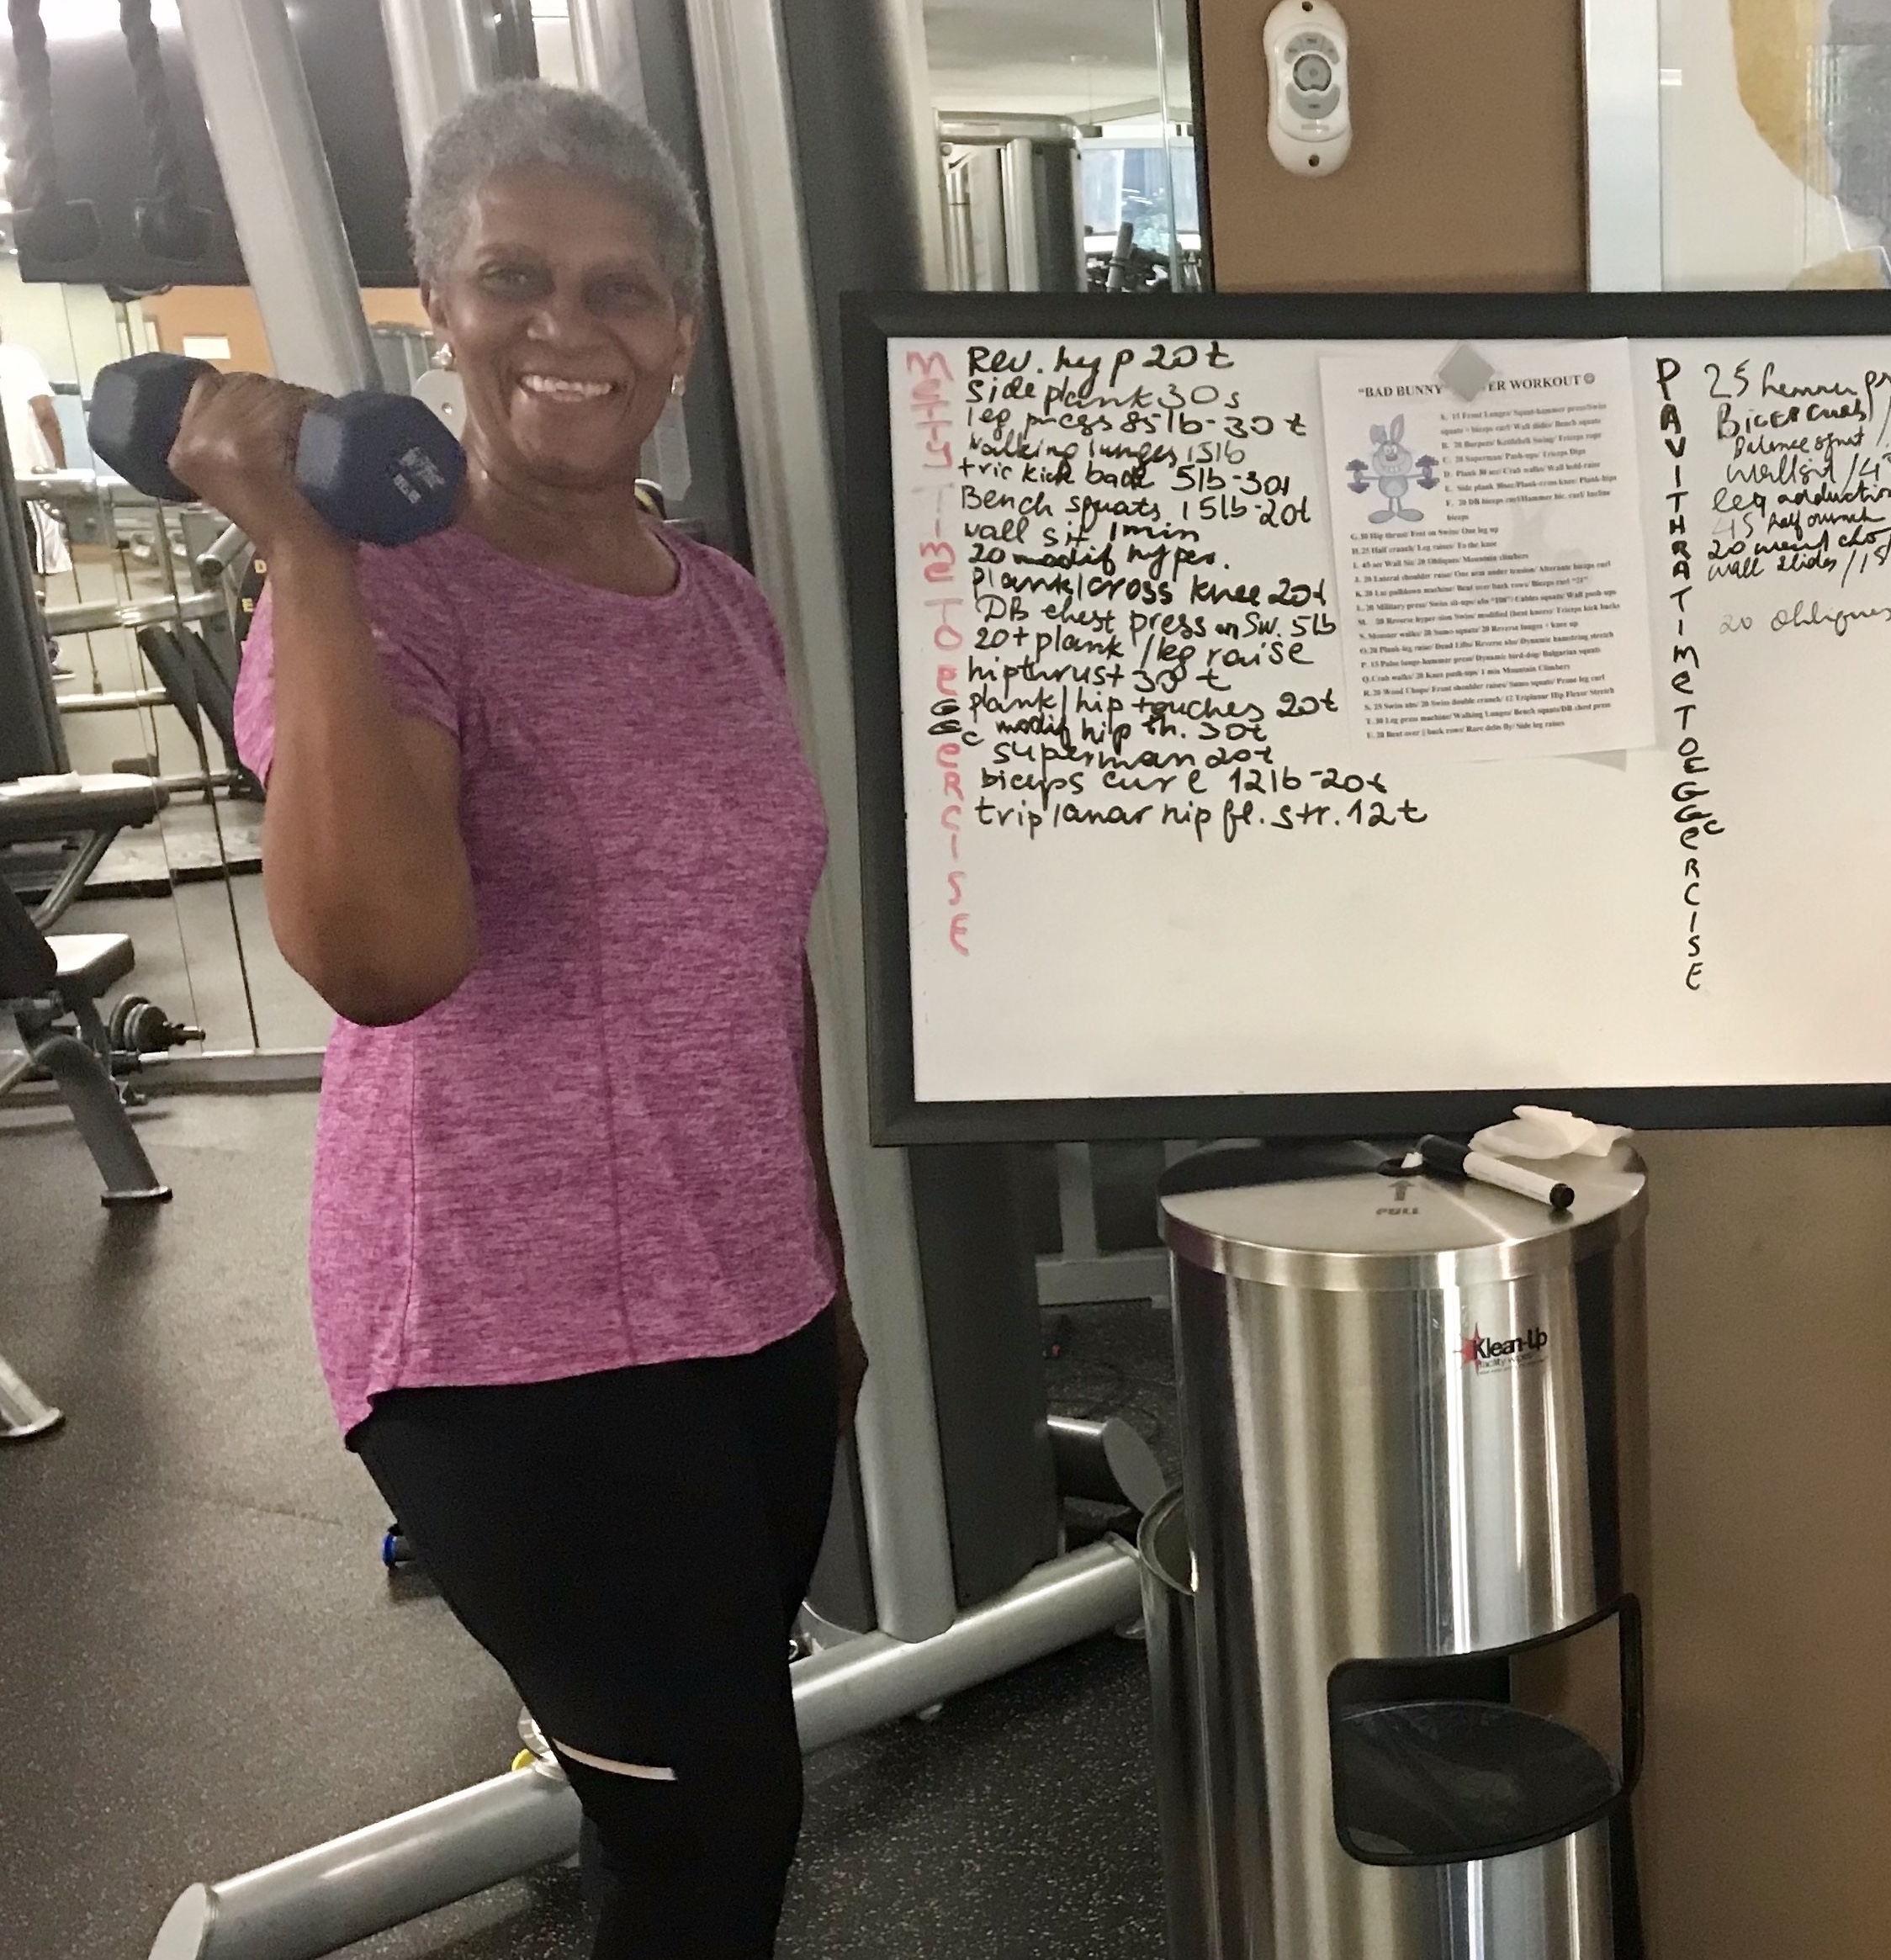 METTY TIME TO EGGcERCISE
Rev. hyp 20t
Side plank 30s
leg press 85lb-30t
walking lunges 15lb
tric kick back 5lb-30t
Bench squats 15lb-20t
wall sit 1min
20 modif hyper.
plank/cross knee 20t
DB chest press on Sw. 5lb
20t plank/leg raise
hip thrust 30 t
plank/hip touches 20t
modif hip th. 30t
superman 20t
biceps curl 12lb-20t
triplanar hip fl. str. 12t
"BAD BUNNY" ER WORKOUT
A. 15 Front Lunges/ Squat-hammer press/Swiss
squats + biceps curl/ Wall slides/ Bench squats
B. 20 Burpees/ Kettlebell Swing/ Triceps rope
C. 20 Superman/ Push-ups/ Triceps Dips
D. Plank 30 sec/ Crab walks/ Wall hold-raise
E. Side plank 30sec/Plank-cross knee/ Plank-hips
F. 20 DB biceps curl/Hammer bic. curl/ Incline
biceps
G. 30 Hip thrust/ Feet on Swiss/ One leg up
H. 25 Half crunch/ Leg raises/ To the knee
I. 45 sec Wall Sit/ 20 Obliques/ Mountain climbers
J. 20 Lateral shoulder raise/ One arm under tension/ Alternate biceps curl
K. 20 Lat pulldown machine/ Bent over back rows/ Biceps curl "21"
L. 20 Military press/ Swiss sit-ups/ abs "100"/ Cables squats/ Wall push-ups
M. 20 Reverse hyper-tion Swiss/ modified (bent knees)/ Triceps kick backs
N. Monster walks/ 20 Sumo squats/ 20 Reverse lunges + knee up
O. 20 Plank-leg raise/ Dead Lifts/ Reverse abs/ Dynamic hamstring stretch
P. 15 Pulse lunge-hammer press/ Dynamic bird-dog/ Bulgarian squats
Q. Crab walks/ 20 Knee push-ups/ 1 min Mountain Climbers
R. 20 Wood Chops/ Front shoulder raises/ Sumo squats/ Prone leg curl
S. 25 Swiss abs/ 20 Swiss double crunch/ 12 Triplanar Hip Flexor Stretch
T. 30 Leg press machine/ Walking Lunges/ Bench squats/DB chest press
U. 20 Bent over || back rows/ Rare delts fly/ Side leg raises
PAVITHRA TIME TO EGGcERCISE
25 hammer pr
BICEP Curls/
Balance squat /
Wallsit /4
leg adduction
45 half crunch
20 wood cho
wall slides /15
20 obliques
PULL
Klean-Up
facility wipes